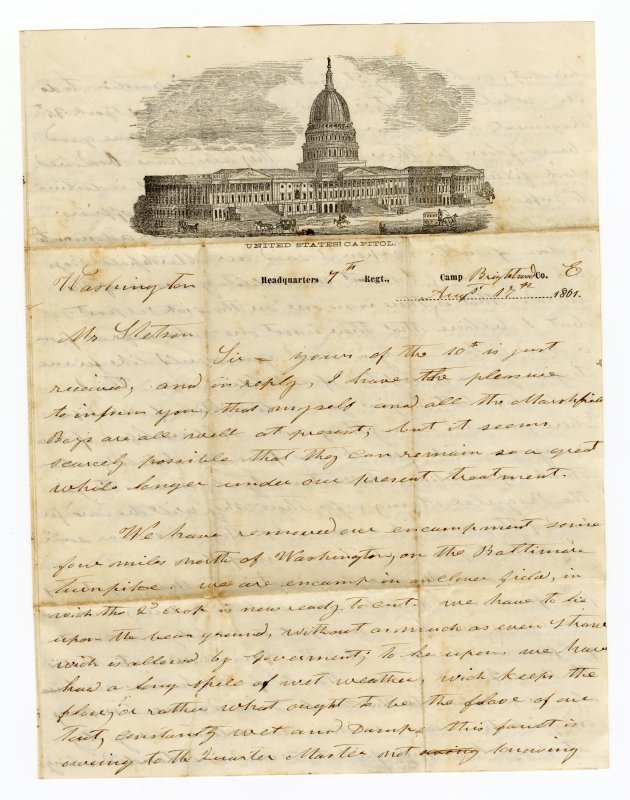 UNITED STATES CAPITOL.
Washington Headquarters 7th Regt., Camp Brightwood Co. E
Augst 17th 1861.
Mr Stetson
Sir - yours of the 10th is just
received, and in reply, I have the pleasure
to inform you, that myself and all the Marshfield
Boys are all well at present, but it seems
scarcely possible that they can remain so a great
while longer under our present treatment.
We have removed our encampment some
four miles north of Washington, on the Baltimore
turnpike we are encamp on an clover field, in
wich the 2d crop is now ready to cut. we have to lie
upon the bear ground, without as much as even straw
wich is allowed by Goverment, to lie upon. we have
had a long spele of wet weather, wich keeps the
floor, or rather what ought to be the floor of our
tent, constantly wet and Damp. this fault is
owing to the Quarter Master not knowing